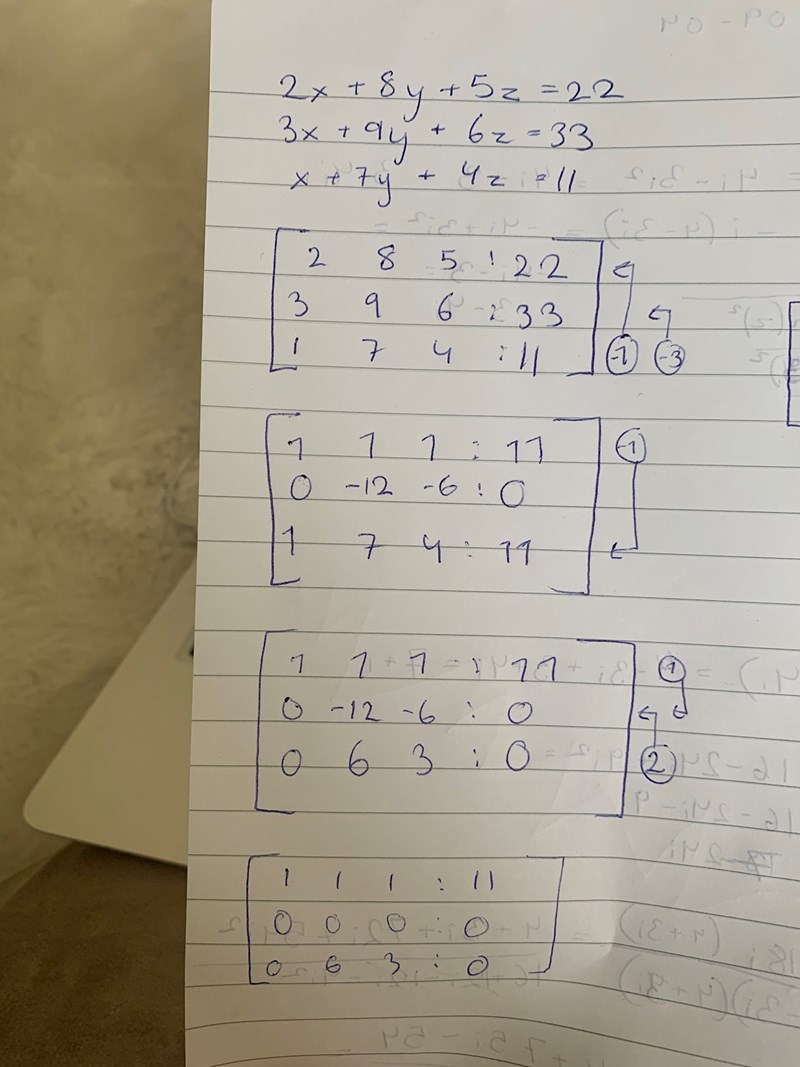 2x + 8y + 5z = 22
3x + 9y + 6z = 33
x + 7y + 4z = 11
2 8 5 : 22
3 9 6 : 33
1 7 4 : 11 -1 -3
1 1 1 : 11 -1
0 -12 -6 : 0
1 7 4 : 11
1 1 1 : 11
0 -12 -6 : 0
0 6 3 : 0 2
1 1 1 : 11
0 0 0 : 0
0 6 3 : 0